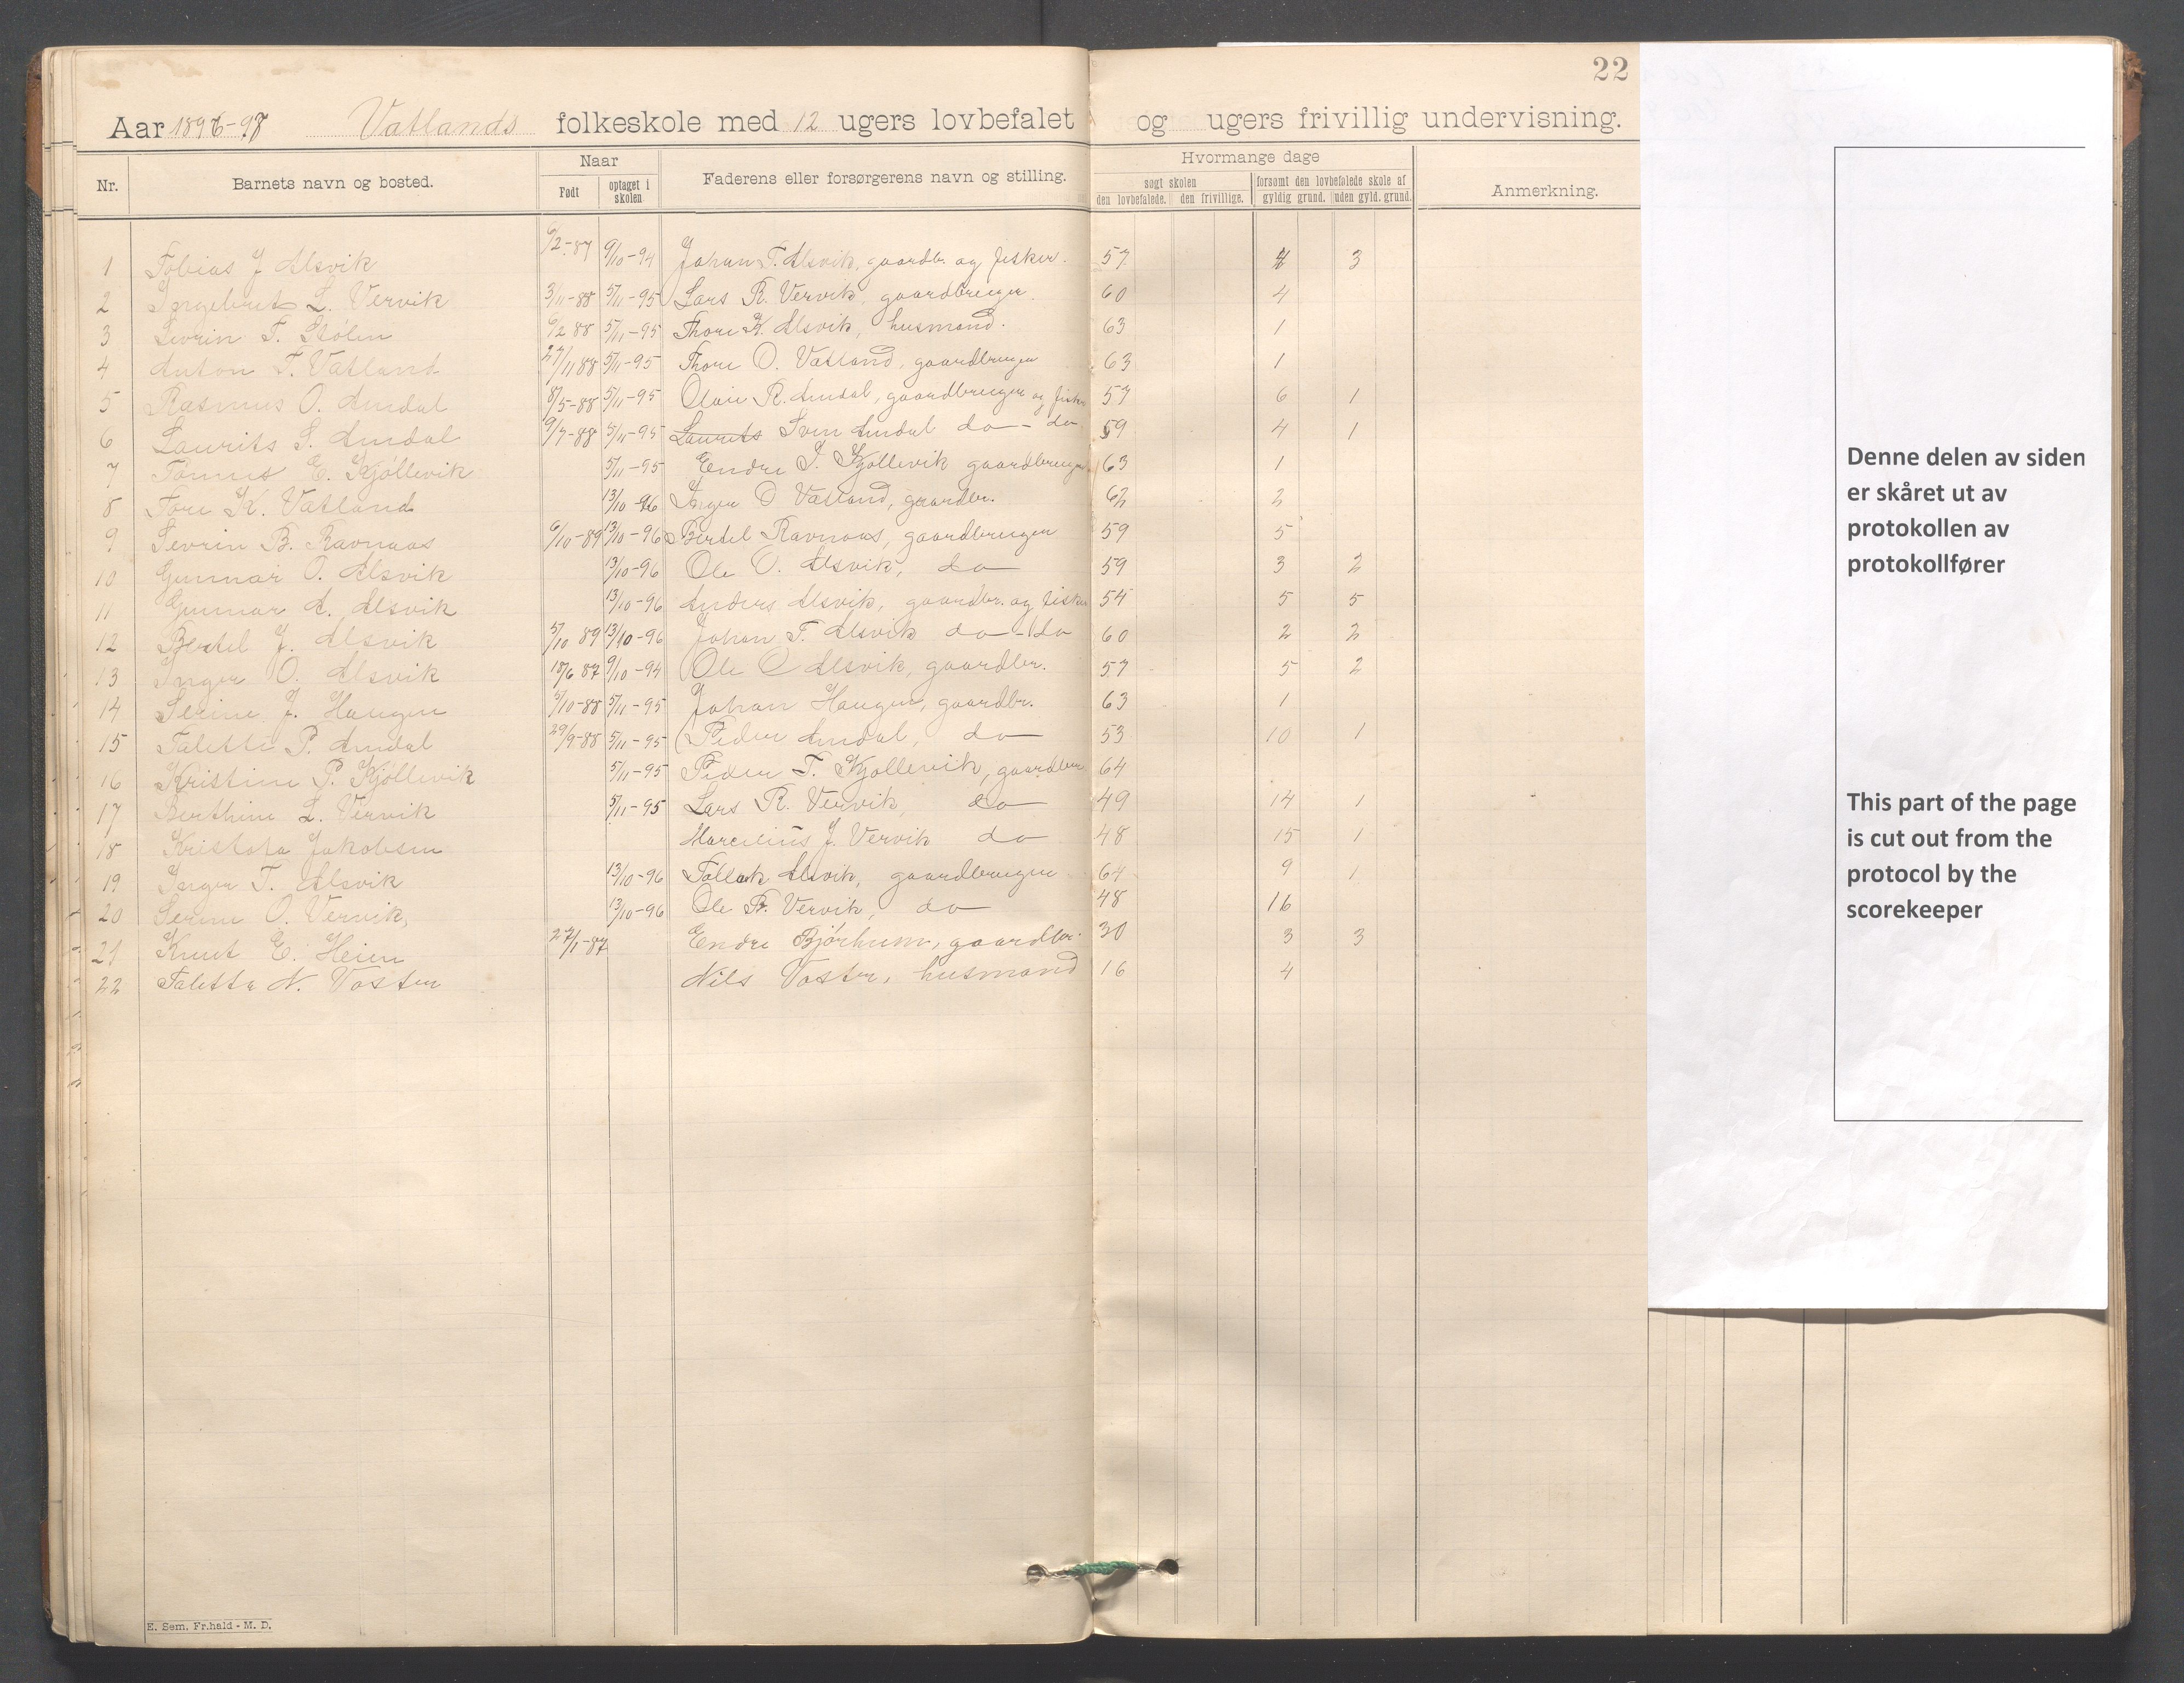 22
Aar 1896-97 Vatlands folkeskole med 12 ugers lovbefalet og ugers frivillig undervisning.
Nr. Barnets navn og bosted. Naar Født optaget i skolen Faderens eller forsørgerens navn og stilling. Hvormange dage søgt skolen den lovbefalede. den frivillige. forsømt den lovbefalede skole af gyldig grund. uden gyld. grund. Anmerkning.
1 Tobias J Alsvik 6/2-87 9/10-94 Johan T. Alsvik, gaardbr. og fisker. 57 4 3
2 Ingebret L. Vervik 3/11-88 5/11-95 Lars R. Vervik, gaardbruger. 60 4
3 Sevrin T. Stølen 6/2 88 5/11-95 Thore K. Alsvik, husmand. 63 1
4 Anton T. Vatland 27/11 88 5/11-95 Thore O. Vatland, gaardbruger 63 1
5 Rasmus O. Amdal 8/5-88 5/11-95 Olai R. Amdal, gaardbruger og fisker 57 6 1
6 Laurits S. Amdal 9/7-88 5/11-95 Laurits Sven Amdal do - do 59 4 1
7 Tønnes E. Kjøllevik 5/11-95 Endre I. Kjøllevik gaardbruger 63 1
8 Tore K. Vatland 13/10-96 Inger O Vatland, gaardbr. 62 2
9 Sevrin B. Ravnaas 6/10-89 13/10-96 Bertel Ravnaas, gaardbruger 59 5
10 Gunnar O. Alsvik 13/10-96 Ole O. Alsvik, do 59 3 2
11 Gunnar A. Alsvik 13/10-96 Anders Alsvik, gaardbr. og fisker 54 5 5
12 Bertel J. Alsvik 5/10 89 13/10-96 Johan T. Alsvik do - do 60 2 2
13 Inger O. Alsvik 18/6 87 9/10-94 Ole O Alsvik, gaardbr. 57 5 2
14 Serine J. Haugen 5/10-88 5/11-95 Johan Haugen, gaardbr. 63 1
15 Talette P. Amdal 29/9-88 5/11-95 Peder Amdal, do 53 10 1
16 Kristine P. Kjøllevik 5/11-95 Peder T. Kjøllevik, gaardbr 64
17 Berthine L. Vervik 5/11-95 Lars R. Vervik, do 49 14 1
18 Jakobsen Marcelius J. Vervik do 48 15 1
19 Inger T. Alsvik 13/10-96 Tollak Alsvik, gaardbruger 64 9 1
20 Serine O. Vervik, 13/10-96 Ole R. Vervik, do 48 16
21 Knut E. Heien 27/1-87 Endre Bjørhum, gaardbr. 30 3 3
22 Taletta N. Vosten Nils Voster, husmand 16 4
E. Sem. Fr.hald - M. D.
Denne delen av siden
er skåret ut av
protokollen av
protokollfører
This part of the page
is cut out from the
protocol by the
scorekeeper